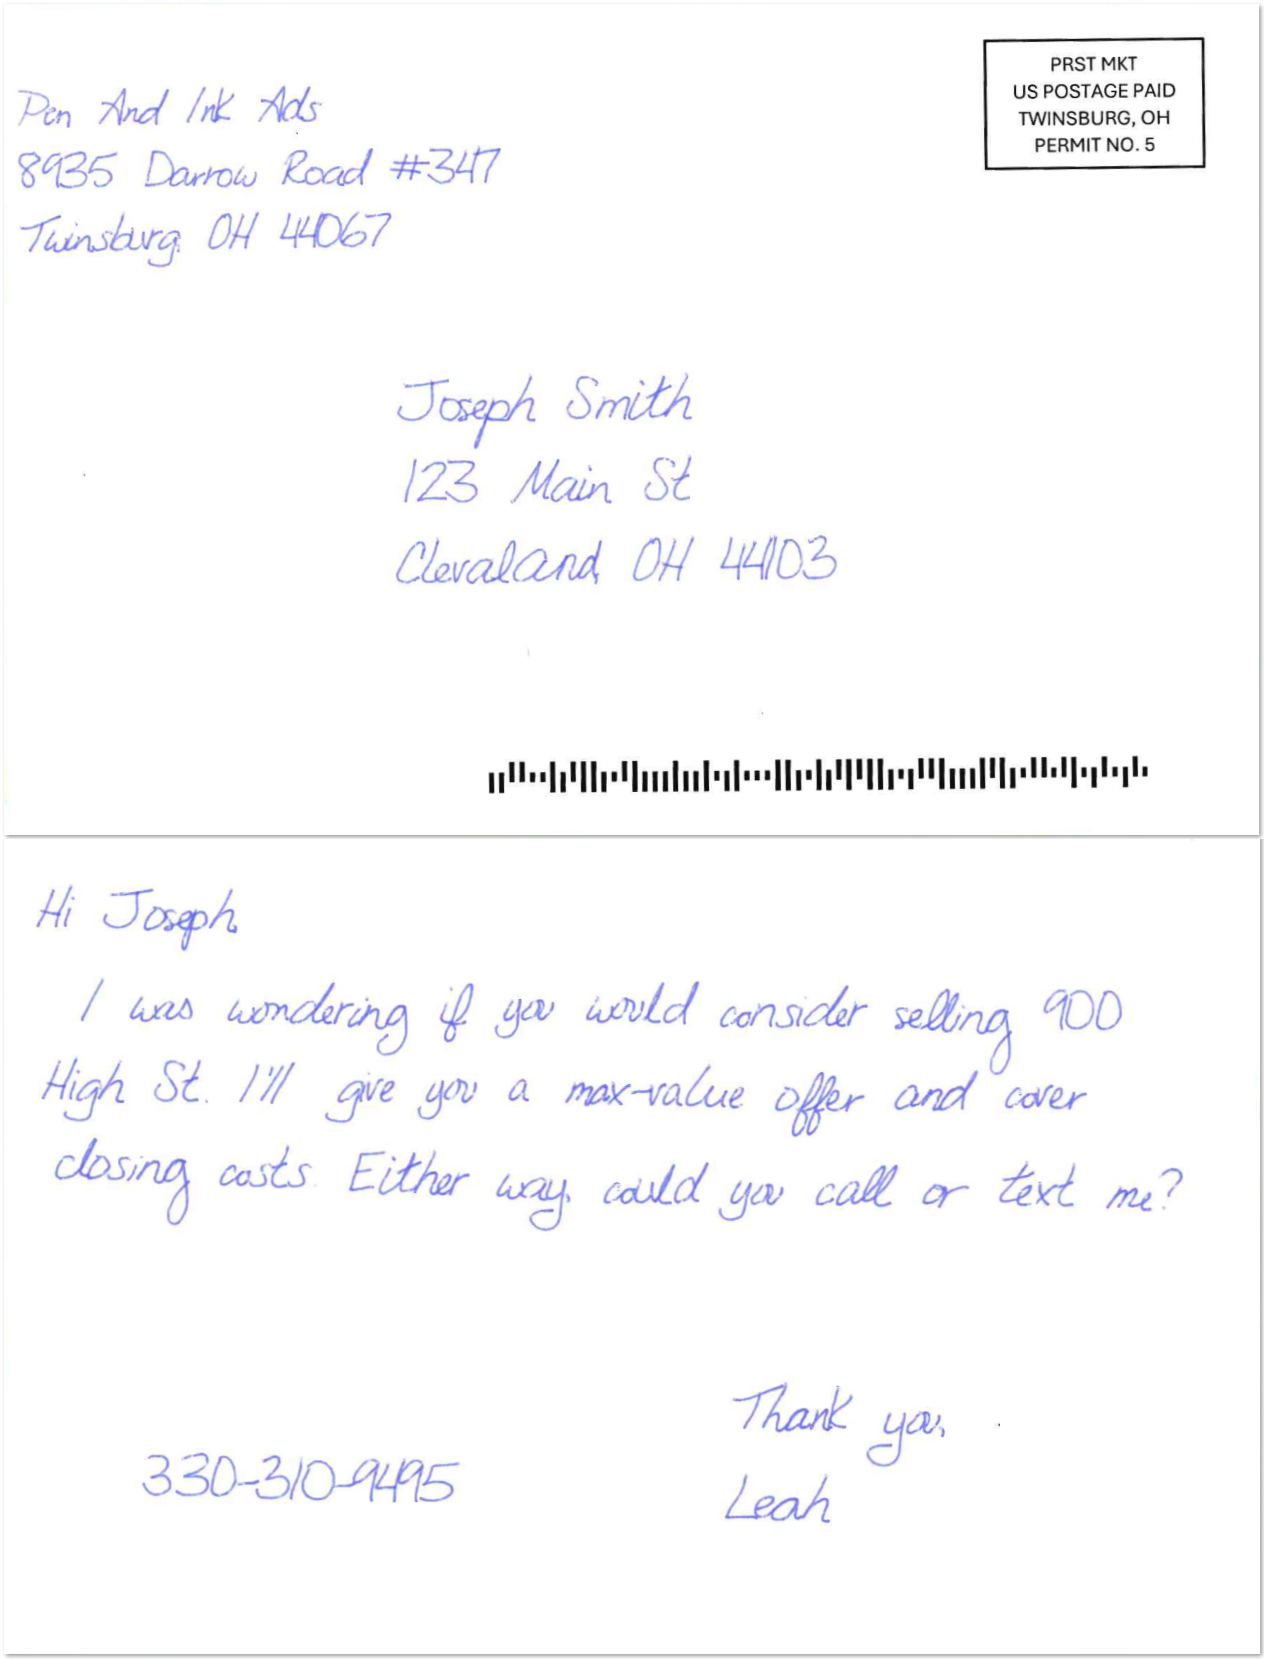 Pen And Ink Ads
8935 Darrow Road #347
Twinsburg, OH 44067
PRST MKT
US POSTAGE PAID
TWINSBURG, OH
PERMIT NO. 5
Joseph Smith
123 Main St
Clevaland, OH 44103
Hi Joseph,
I was wondering if you would consider selling 900
High St. I'll give you a max-value offer and cover
closing costs. Either way, could you call or text me?
Thank you,
330-310-9495
Leah